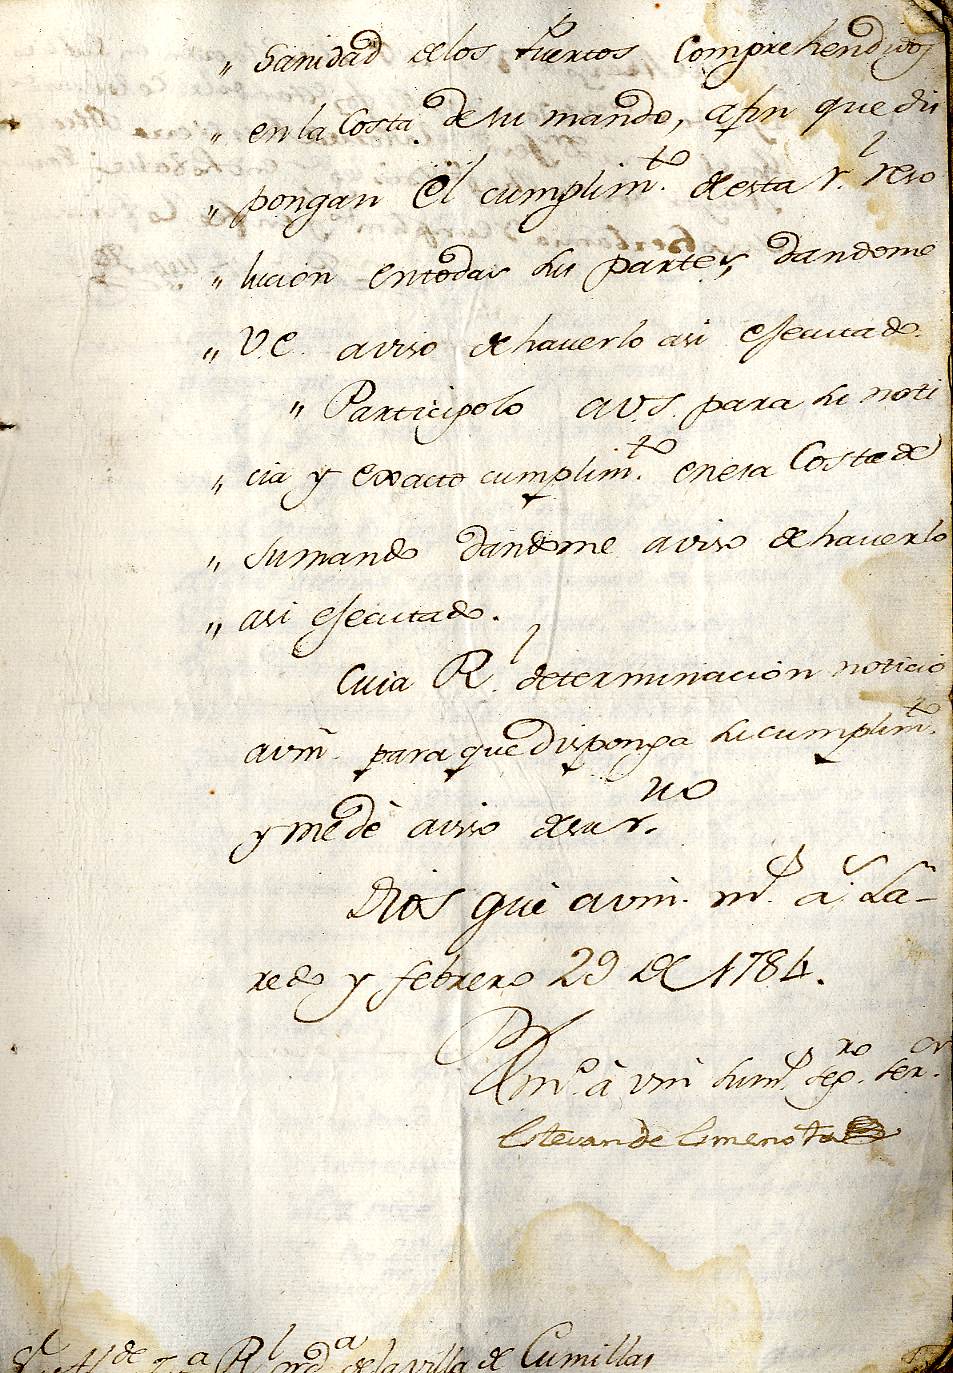 „ Sanidad delos Puertos Comprehendidos
„ en la Costa de su mando, afin que dis
„ pongan el cumplim.to de esta r.l reso
„ lucion entodas sus partes, dandome
„ V.E. aviso de haverlo asi efecutado.
„ Participolo a V.S. para su noti
„ cia y exacto cumplim.to en esa Costa de
„ sumando dandome aviso de haverlo
„ asi efecutado.
Cuia R.l determinacion noticio
avm̃. para que disponga su cumplim.to
y me dè aviso desu r.vo
Dios gũe avm̃. m.s a.s La-
redo y febrero 29 de 1784.
BLm.o â vm̃ sum.s seg.ro ser.or
Estevan de Esmenota
S.r Al.de J.a R.l ord.a de la villa de Cumillas